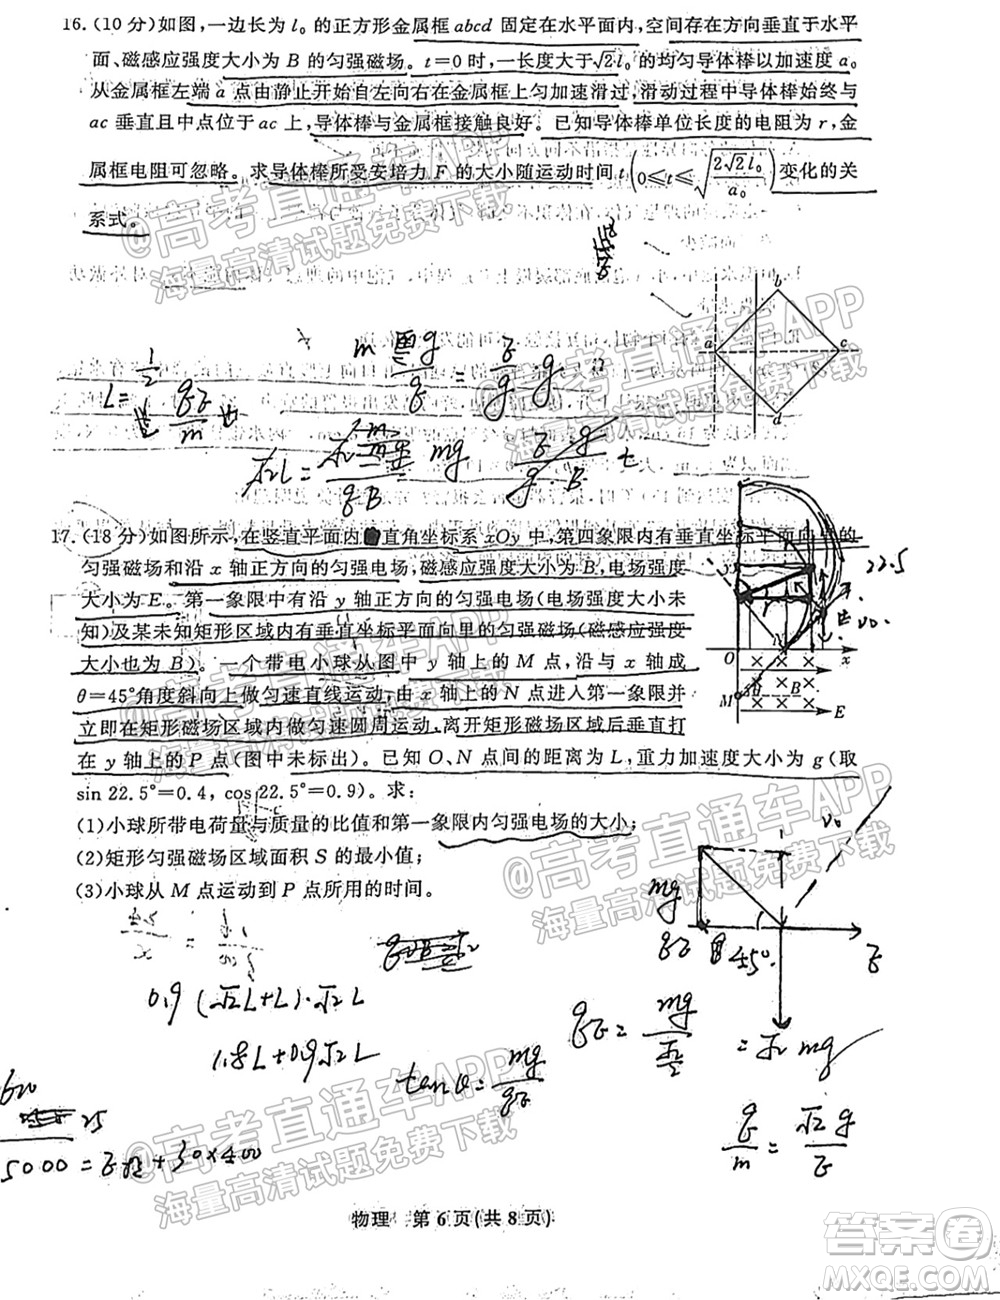 16.(10分)如图,一边长为 l₀ 的正方形金属框 abcd 固定在水平面内,空间存在方向垂直于水平
面、磁感应强度大小为 B 的匀强磁场。t=0时,一长度大于√2 l₀ 的均匀导体棒以加速度 a₀
从金属框左端 a 点由静止开始自左向右在金属框上匀加速滑过,滑动过程中导体棒始终与
ac 垂直且中点位于 ac 上,导体棒与金属框接触良好。已知导体棒单位长度的电阻为 r,金
属框电阻可忽略。求导体棒所受安培力 F 的大小随运动时间 t(0≤t≤√(2√2 l₀/a₀))变化的关
系式。
b
a
c
d
L=
m
√2L=
qB
mg
t
17.(18分)如图所示,在竖直平面内 直角坐标系 xOy 中,第四象限内有垂直坐标平面向里的
匀强磁场和沿 x 轴正方向的匀强电场,磁感应强度大小为 B,电场强度
大小为 E。第一象限中有沿 y 轴正方向的匀强电场(电场强度大小未
知)及某未知矩形区域内有垂直坐标平面向里的匀强磁场(磁感应强度
大小也为 B)。一个带电小球从图中 y 轴上的 M 点,沿与 x 轴成
θ=45°角度斜向上做匀速直线运动,由 x 轴上的 N 点进入第一象限并
立即在矩形磁场区域内做匀速圆周运动,离开矩形磁场区域后垂直打
在 y 轴上的 P 点(图中未标出)。已知 O、N 点间的距离为 L,重力加速度大小为 g(取
sin 22.5°=0.4, cos 22.5°=0.9)。求:
(1)小球所带电荷量与质量的比值和第一象限内匀强电场的大小;
(2)矩形匀强磁场区域面积 S 的最小值;
(3)小球从 M 点运动到 P 点所用的时间。
22.5
O
N
x
M
B
E
mg
qE
45°
E
0.9(√2L+L)·√2L
1.8L+0.9√2L
tanθ=mg/qE
=√2 mg
q/m=√2 g/E
物理 第 6 页(共 8 页)
@高考直通车APP
海量高清试题免费下载
@高考直通车APP
海量高清试题免费下载
@高考直通车APP
海量高清试题免费下载
@高考直通车APP
海量高清试题免费下载
答案圈
MXQE.COM